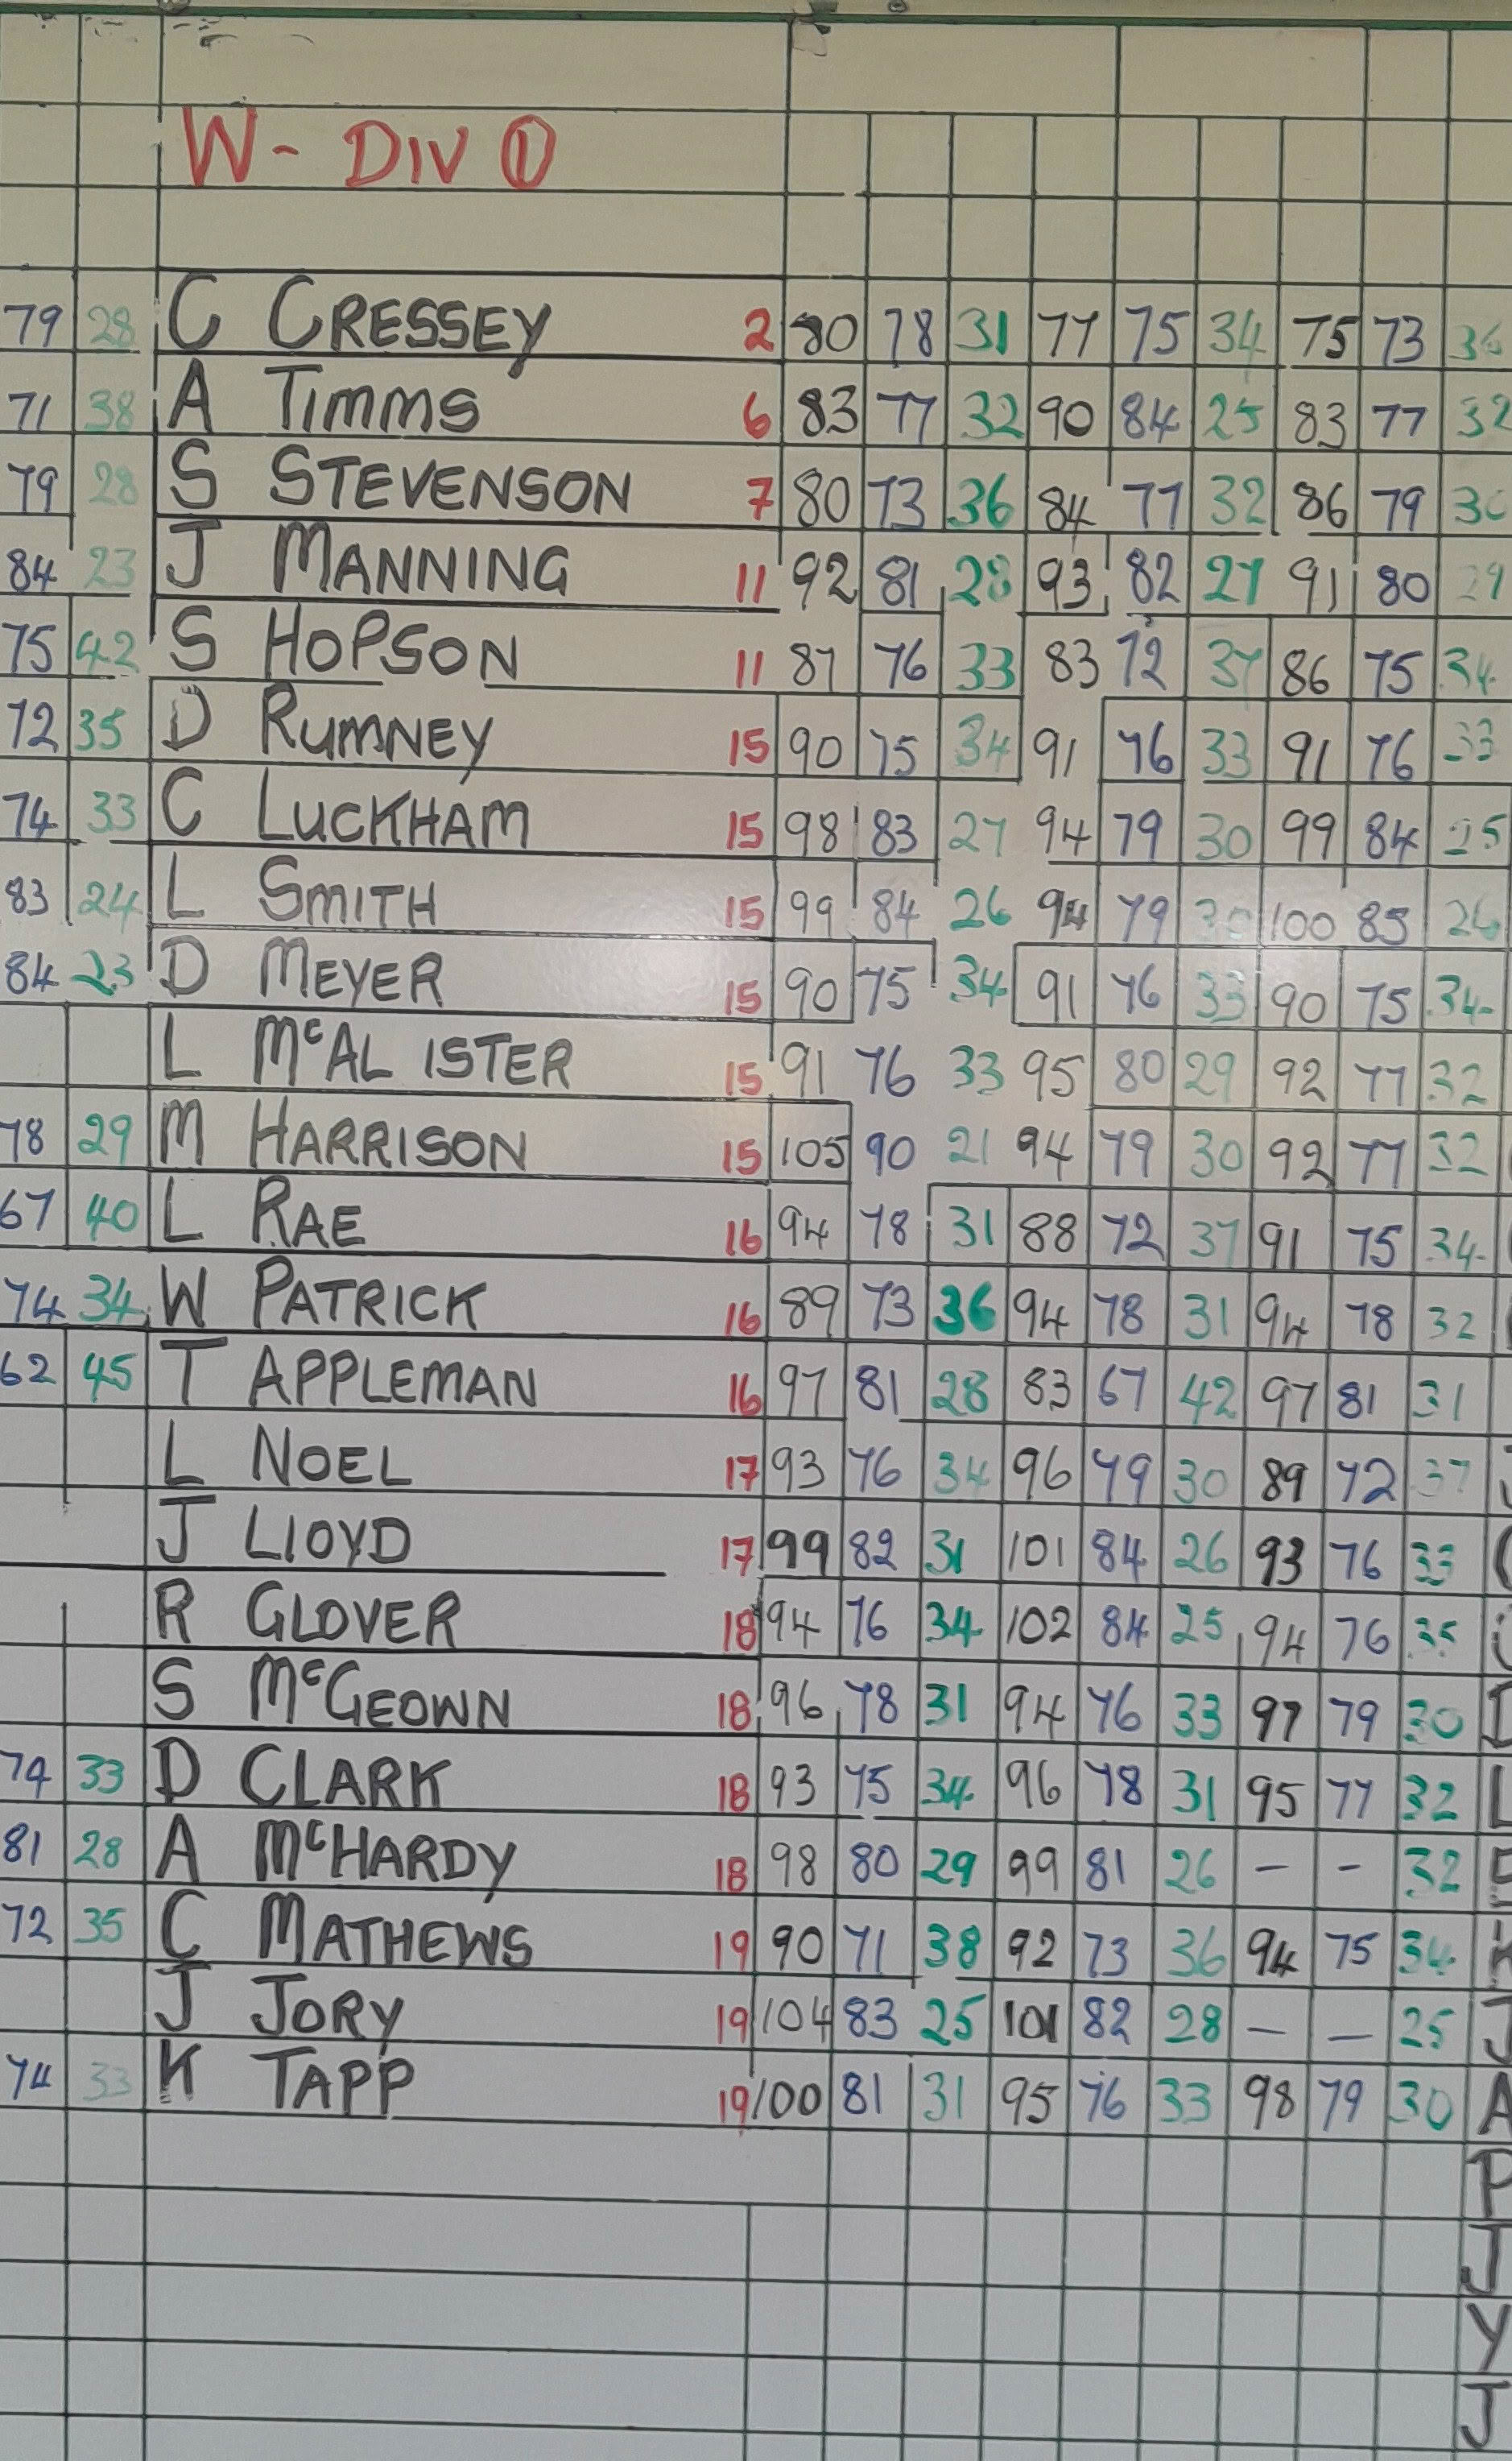 W- DIV ①
79 28 C CRESSEY 2 80 78 31 77 75 34 75 73
71 38 A TIMMS 6 83 77 32 90 84 25 83 77 32
79 28 S STEVENSON 7 80 73 36 84 77 32 86 79 30
84 23 J MANNING 11 92 81 28 93 82 27 91 80 29
75 42 S HOPSON 11 87 76 33 83 72 37 86 75 34
72 35 D RUMNEY 15 90 75 34 91 76 33 91 76 33
74 33 C LUCKHAM 15 98 83 27 94 79 30 99 84 25
83 24 L SMITH 15 99 84 26 94 79 30 100 85 26
84 23 D MEYER 15 90 75 34 91 76 33 90 75 34
L McAL ISTER 15 91 76 33 95 80 29 92 77 32
78 29 M HARRISON 15 105 90 21 94 79 30 92 77 32
67 40 L RAE 16 94 78 31 88 72 37 91 75 34
74 34 W PATRICK 16 89 73 36 94 78 31 94 78 32
62 45 T APPLEMAN 16 97 81 28 83 67 42 97 81 31
L NOEL 17 93 76 34 96 79 30 89 72 37
J LLOYD 17 99 82 31 101 84 26 93 76 33
R GLOVER 18 94 76 34 102 84 25 94 76 35
S McGEOWN 18 96 78 31 94 76 33 97 79 30
74 33 D CLARK 18 93 75 34 96 78 31 95 77 32
81 28 A McHARDY 18 98 80 29 99 81 26 - - 32
72 35 C MATHEWS 19 90 71 38 92 73 36 94 75 34
J JORY 19 104 83 25 101 82 28 - - 25
74 33 K TAPP 19 100 81 31 95 76 33 98 79 30 A
P
J
Y
J